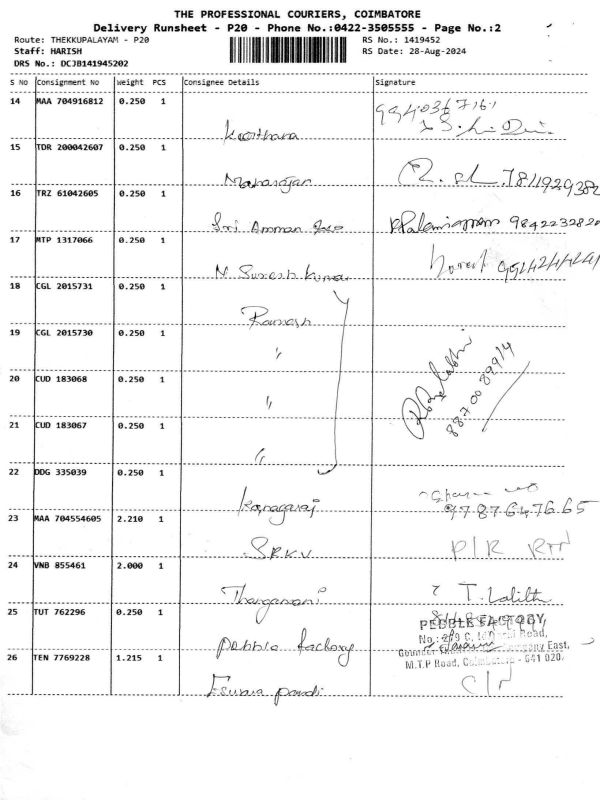 THE PROFESSIONAL COURIERS, COIMBATORE
Delivery Runsheet - P20 - Phone No.:0422-3505555 - Page No.:2
Route: THEKKUPALAYAM - P20
RS No.: 1419452
Staff: HARISH
RS Date: 28-Aug-2024
DRS No.: DCJB141945202
S NO Consignment No Weight PCS Consignee Details Signature
14 MAA 704916812 0.250 1
Keerthana
15 TDR 200042607 0.250 1
Maharajan
16 TRZ 61042605 0.250 1
Sri Amman
17 MTP 1317066 0.250 1
N Suresh Kumar
18 CGL 2015731 0.250 1
Ramesh
19 CGL 2015730 0.250 1
"
20 CUD 183068 0.250 1
"
21 CUD 183067 0.250 1
"
22 DDG 335039 0.250 1
Kanagaraj
9787647665
23 MAA 704554605 2.210 1
SRKV
24 VNB 855461 2.000 1
Thangamani T. Lalith
25 TUT 762296 0.250 1
PEBBLE FACTORY,
Pebble factory
M.T.P Road, Coimbatore - 641 020.
26 TEN 7769228 1.215 1
Eswara pandi